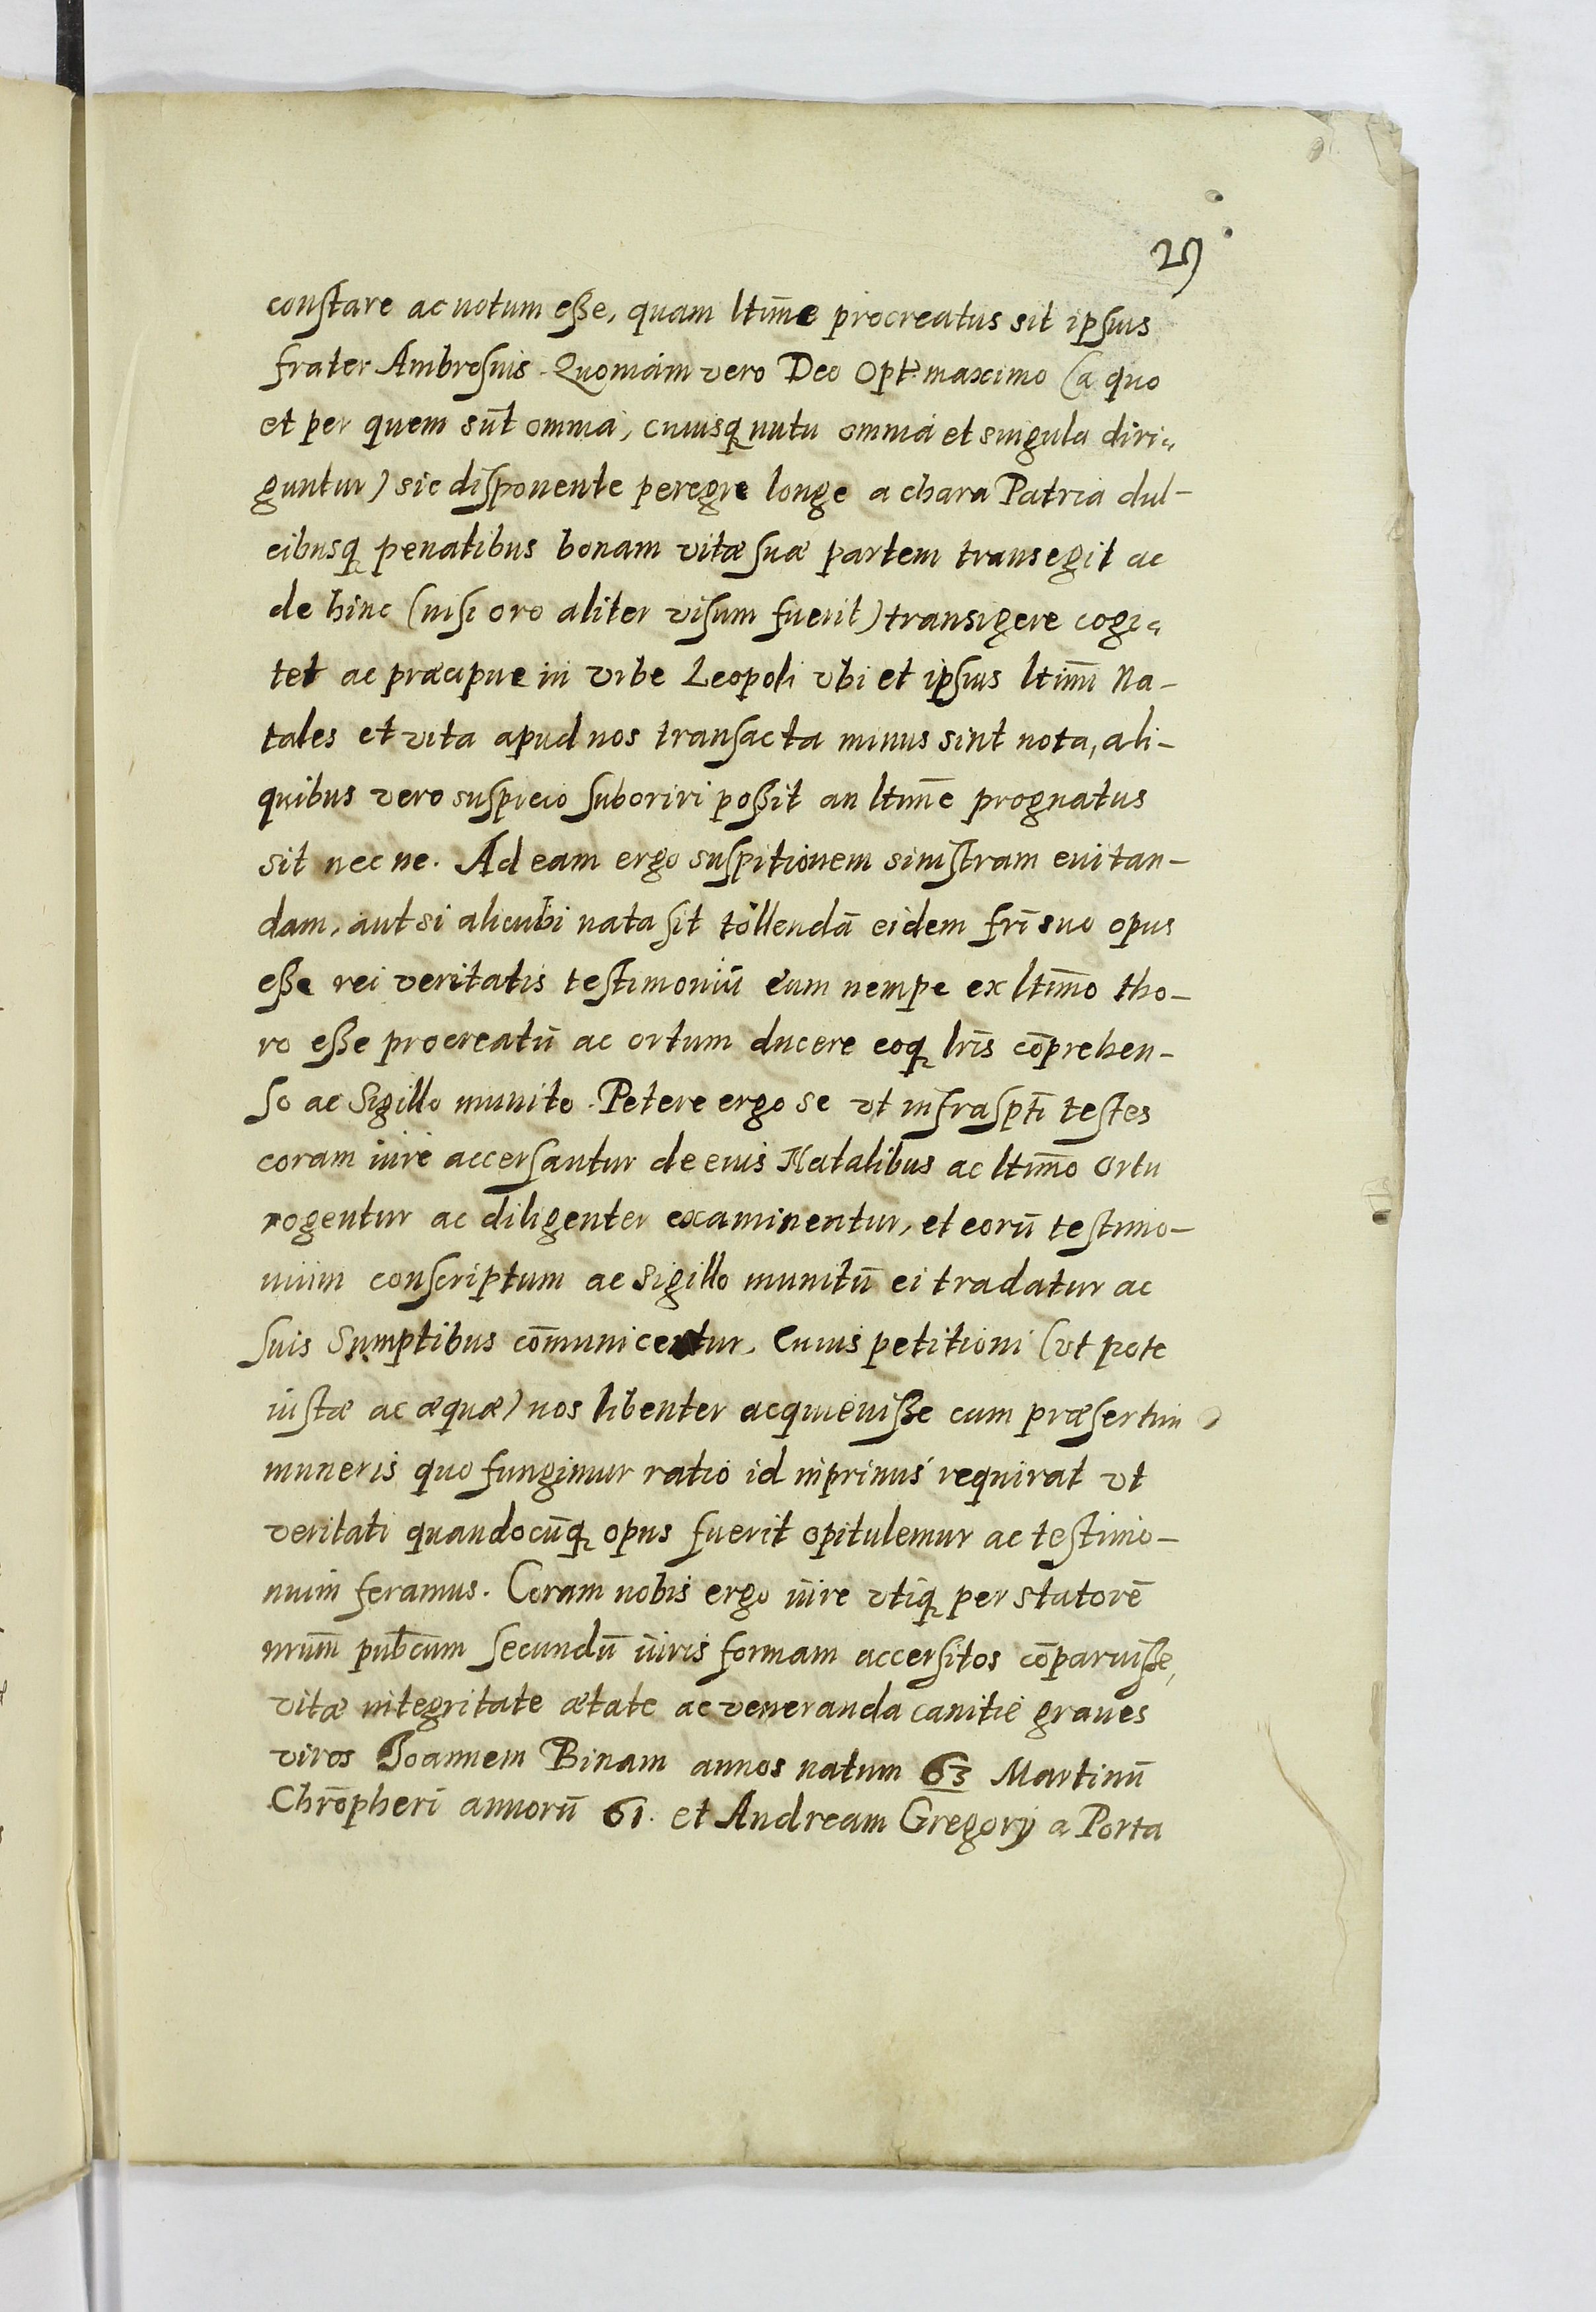 29
constare ac notum eße, quam ltim̄e procreatus sit ipsius
frater Ambrosius. Quoniam vero Deo Opt: maximo (a quo
et per quem sūt omnia, cuiusq̨ nutu omnia et singula diri=
guntur) sic disponente peregre longe a chara Patria dul-
cibusq̨ penatibus bonam vitæ suæ partem transegit ac
de hinc (nisi oro aliter visum fuerit) transigere cogi=
tet ac præcipue in vrbe Leopoli vbi et ipsius ltim̄i Na-
tales et vita apud nos transacta minus sint nota, ali-
quibus vero suspicio suboriri poßit an ltim̄e prognatus
sit nec ne. Ad eam ergo suspitionem sinistram euitan-
dam, aut si alicubi nata sit tollendā eidem frī suo opus
eße rei veritatis testimoniū eum nempe ex ltim̄o tho-
ro eße procreatū ac ortum ducere eoq̨ lrīs cōprehen-
so ac Sigillo munito. Petere ergo se vt infraspti testes
coram iure accersantur de eius Natalibus ac ltim̄o Ortu
rogentur ac diligenter examinentur, et eorū testimo-
nium conscriptum ac Sigillo munitū ei tradatur ac
suis Sumptibus cōmunicetur. Cuius petitioni (vt pote
iustæ ac æquæ) nos libenter acquieuiße cum præsertim
muneris quo fungimur ratio id inprimis requirat vt
veritati quandocūq̨ opus fuerit opitulemur ac testimo-
nium feramus. Coram nobis ergo iure vtiq̨ per statorē
nrum̄ pub̄cum secundū iuris formam accersitos cōparuiße,
vitæ integritate ætate ac veneranda canitie graues
viros Joannem Binam annos natum 63 Martinū
Chrōpheri annorū 61. et Andream Gregorij a Porta